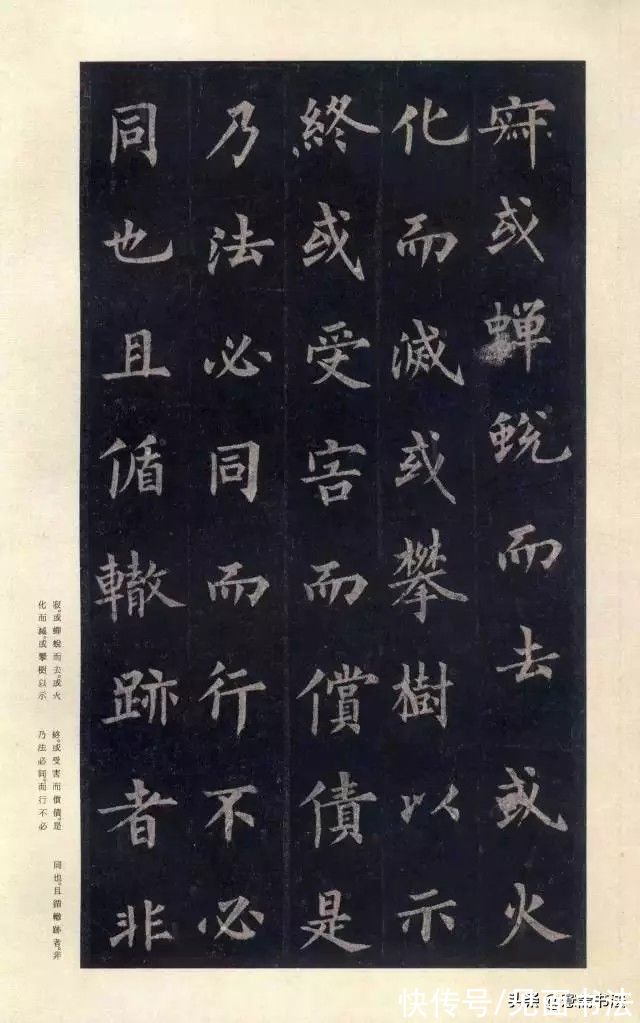 寂或蟬蛻而去或火
化而滅或攀樹以示
終或受害而償債是
乃法必同而行不必
同也且循轍跡者非
寂。或蟬蛻而去。或火
化而滅。或攀樹以示
終。或受害而償債。是
乃法必同。而行不必
同也。且循轍跡者。非
快传号/见面书法